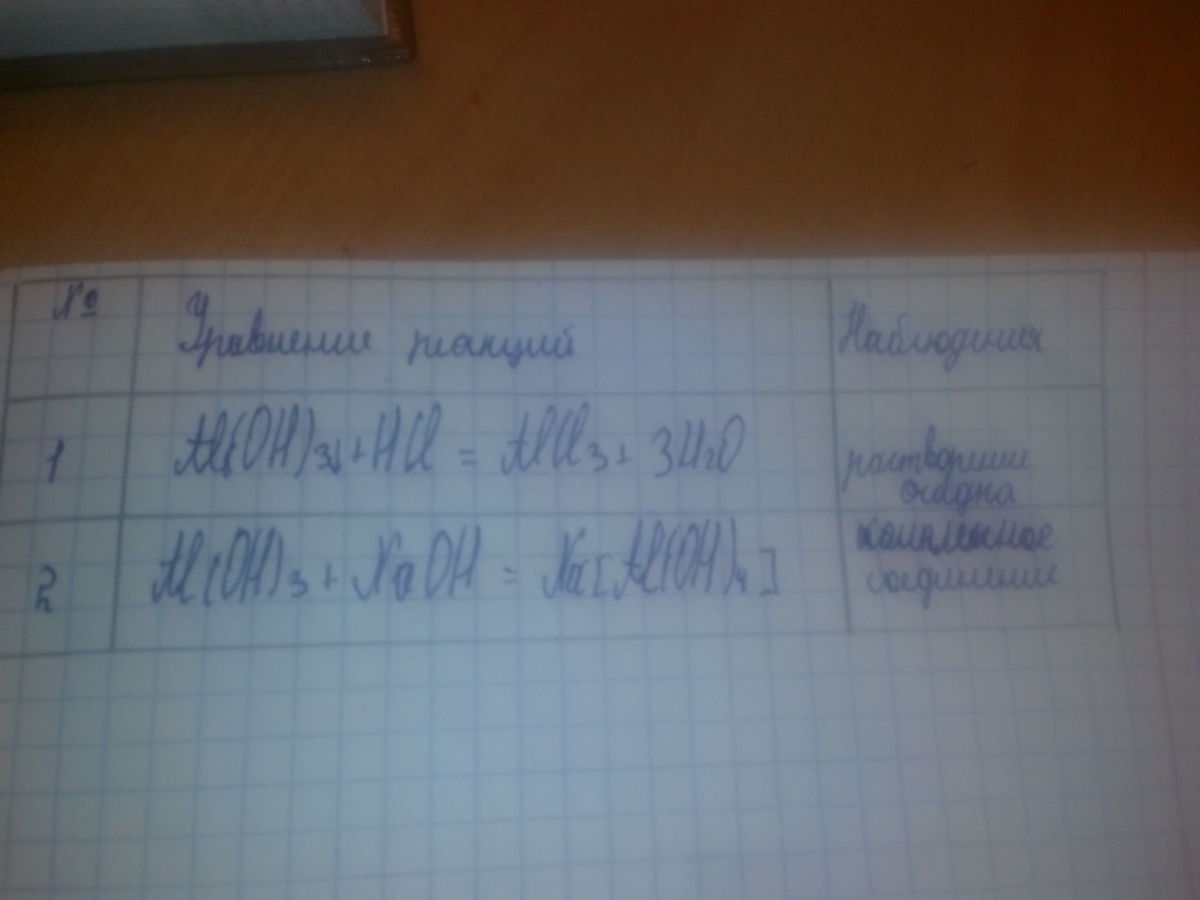 №
Уравнение реакций
Наблюдения
1
Al(OH)₃↓ + HCl = AlCl₃ + 3H₂O
растворение
осадка
2
Al(OH)₃ + NaOH = Na[Al(OH)₄]
комплексное
соединение